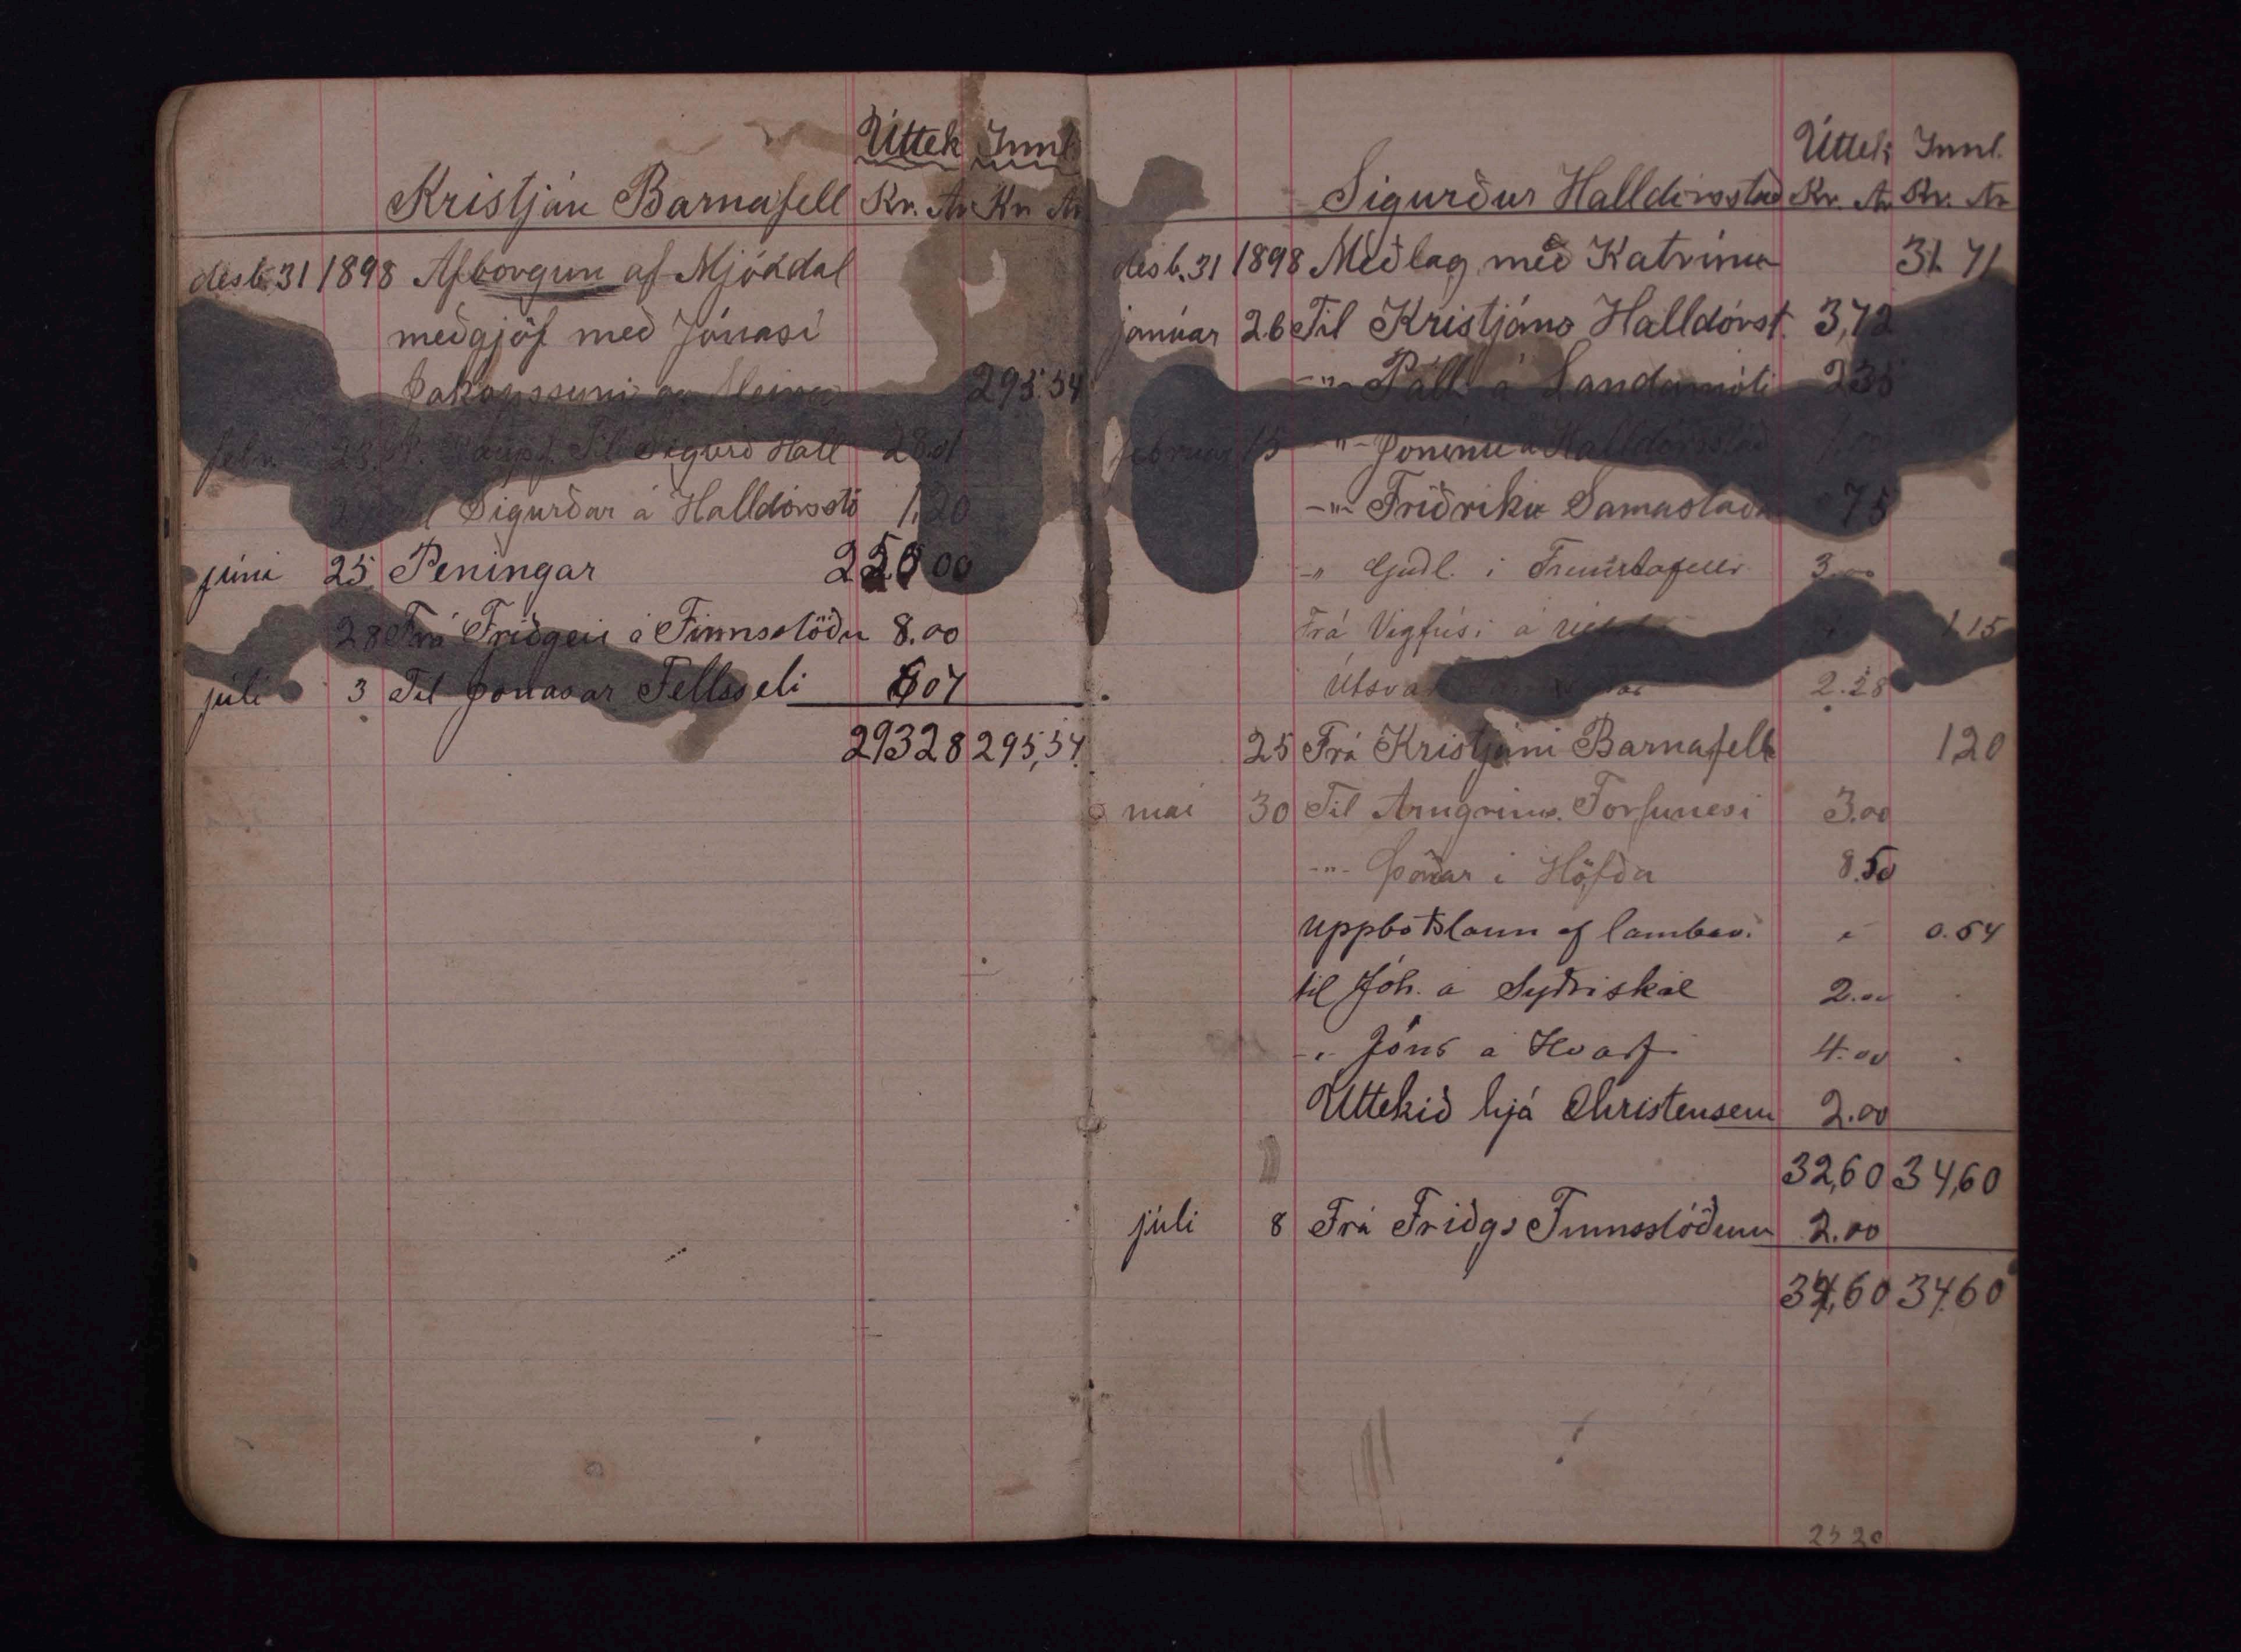 Úttek Innl.
Kristján Barnafell Kr. Ar Kr. Ar
desb. 31 1898 Afborgun af Mjóadal
meðgjöf með Jónasi
295.54
febr. Til Sigurð Hall 28.01
Sigurðar á Halldórsstö 1,20
júni 25 Peningar 250 00
28 Frá Friðgeir á Finnsstöðu 8.00
júlí 3 Til Jónasar Fellsseli 6 07
293 28 295,54
Úttek Innl.
Sigurður Halldórsstað Kr. Ar Kr. Ar
desb. 31 1898 Meðlag með Katrínu 31 71
janúar 26 Til Kristjáns Halldórst. 3,72
-"- Páll á Landamóti 235
februar 15 -"- Jónínu á Halldórsstað
-"- Friðriku Samastað 75
-" Guðl. í 3.00
Frá Vigfúsi á 1.15
Útsvar 2.28
25 Frá Kristjáni Barnafell 120
mai 30 Til Arngríms. Torfunesi 3.00
-"- Þórðar í Höfða 8.50
Uppbótslaun af lambav. 0.54
til Jóh. á Syðriskál 2.00
-"- Jóns á Hvarfi 4.00
Úttekið hjá Christensen 2.00
32,60 34,60
júlí 8 Frá Friðgs Finnsstöðum 2.00
34,60 34,60